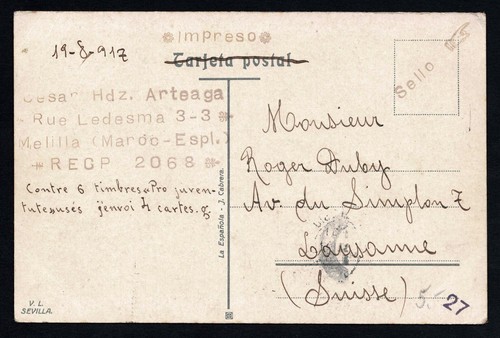 Impreso
19-8-917
Tarjeta postal
Cesar Hdz. Arteaga
Rue Ledesma 3-3
Melilla (Maroc-Espl.)
RECP 2068
Contre 6 timbres «Pro juven-
tute» usés j'envoi 4 cartes.
V. L.
SEVILLA.
La Española - J. Cabrera.
Sello
Monsieur
Roger Duby
Av. du Simplon 7
Lausanne
(Suisse)
27